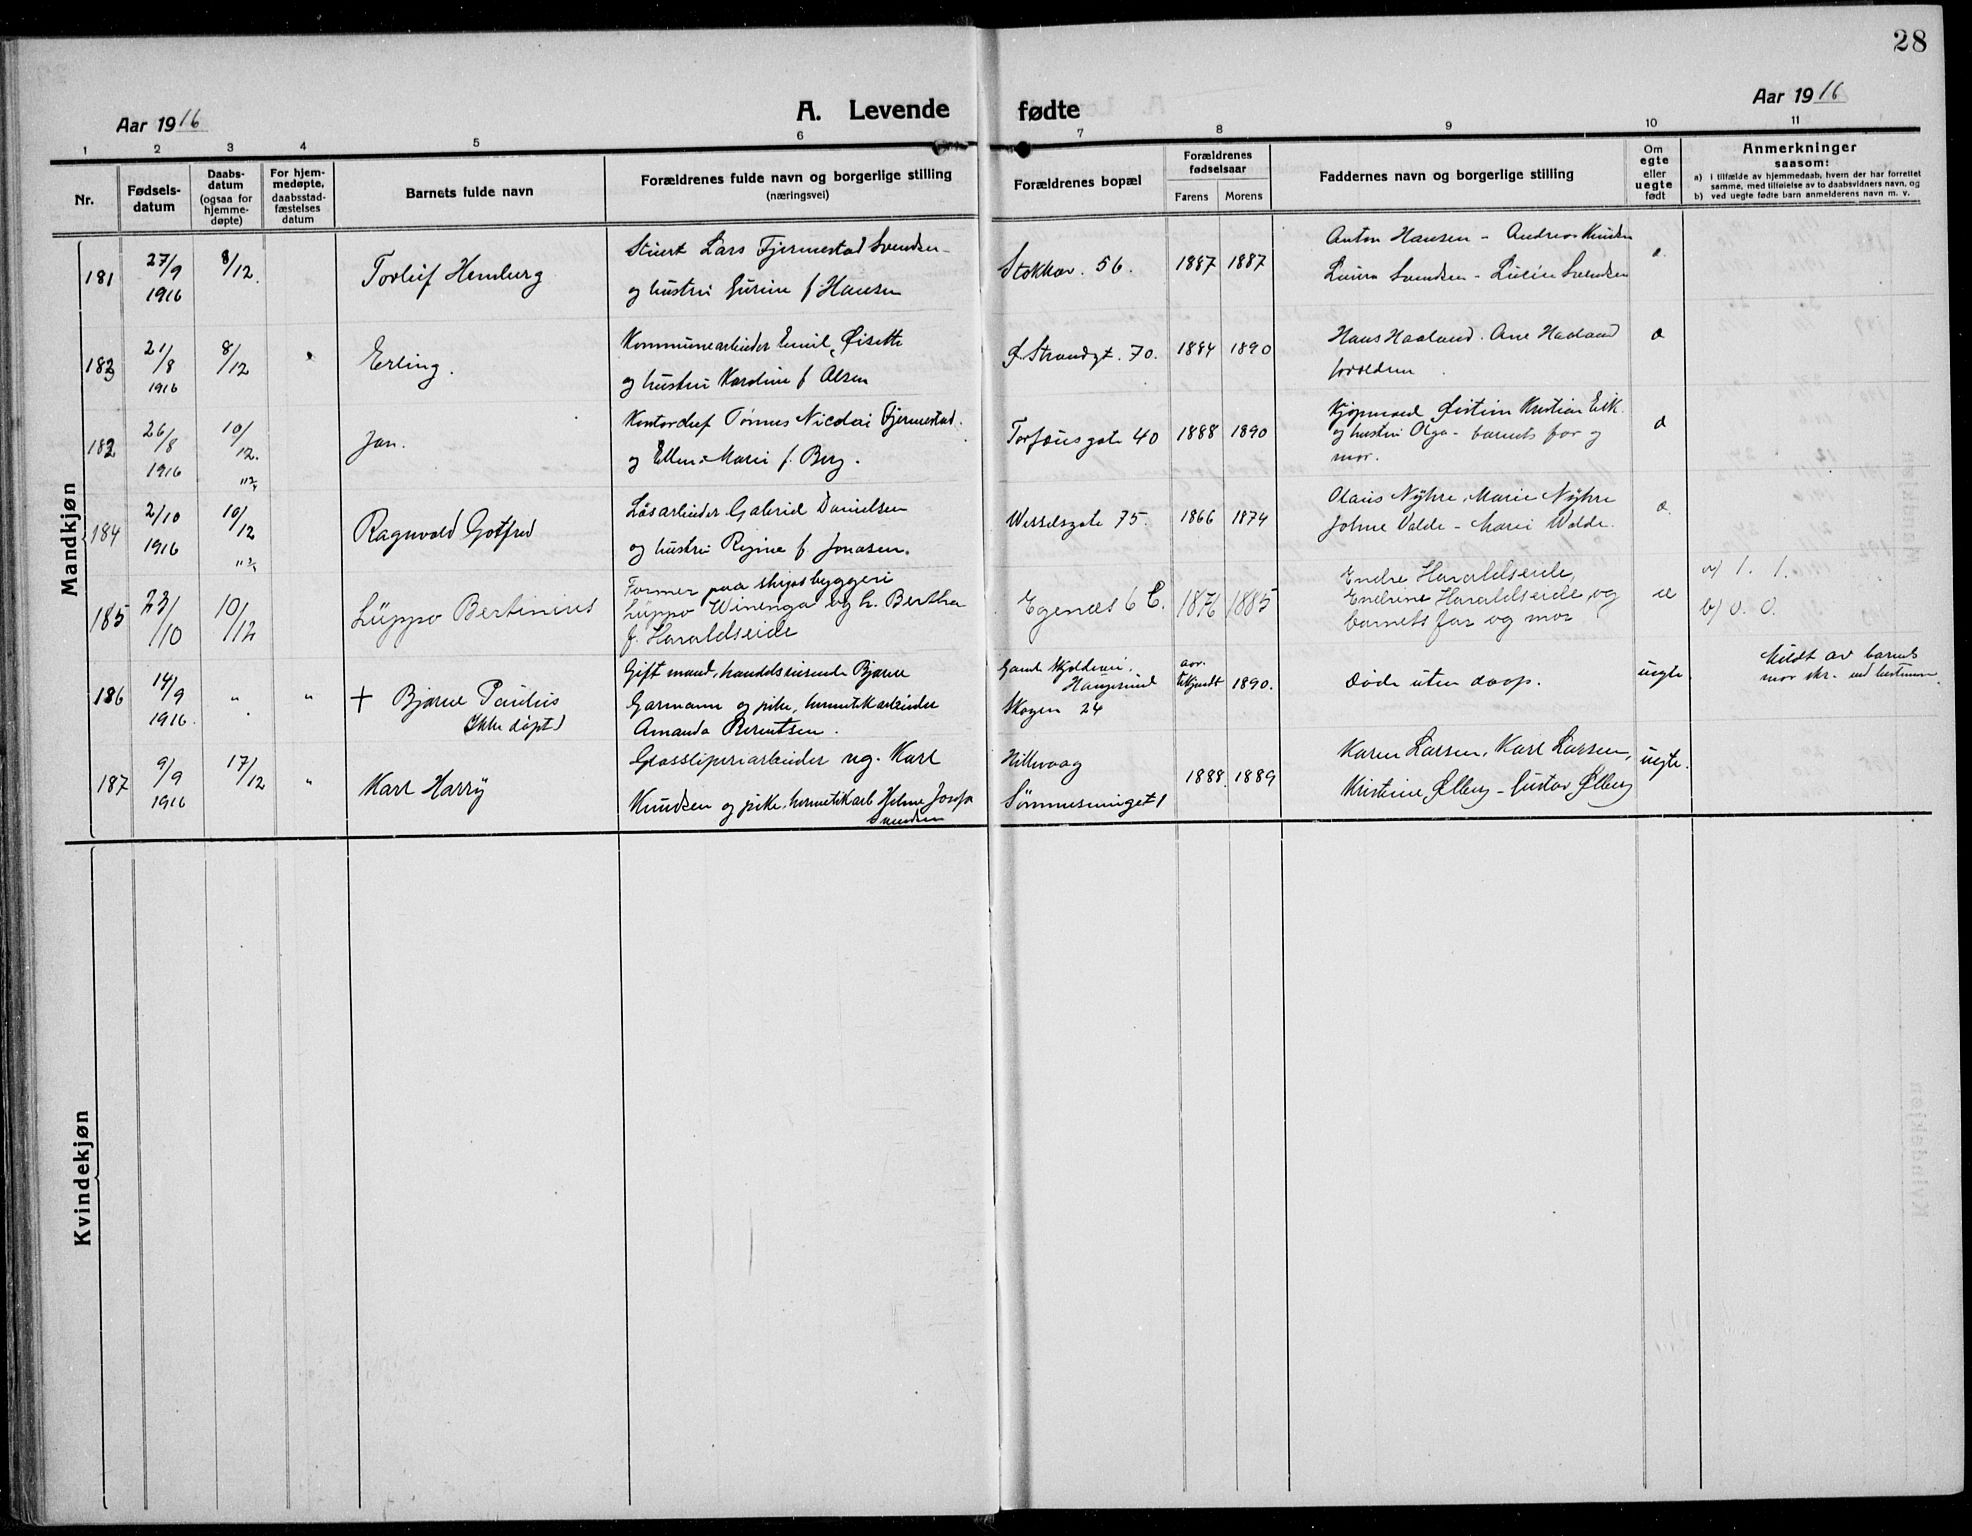 28
Aar 1916
A. Levende fødte
Aar 1916
1 2 3 4 5 6 7 8 9 10 11
Nr.
Fødsels-
datum
Daabs-
datum
(ogsaa for
hjemme-
døpte)
For hjem-
medøpte,
daabsstad-
fæstelses
datum
Barnets fulde navn
Forældrenes fulde navn og borgerlige stilling
(næringsvei)
Forældrenes bopæl
Forældrenes
fødselsaar
Farens Morens
Faddernes navn og borgerlige stilling
Om
egte
eller
uegte
født
Anmerkninger
saasom:
a) i tilfælde av hjemmedaab, hvem der har forrettet
samme, med tilføielse av to daabsvidners navn, og
b) ved uegte fødte barn anmelderens navn m. v.
Mandkjøn
181
27/9
1916
8/12.
Torleif Hemburg
Stuert Lars Fjermestad Svendsen
og hustru Gurine f. Hansen
Stokkav. 56.
1887 1887
Anton Hansen - Andreas Knudsen
Laura Svendsen - Svendsen
183
21/8
1916
8/12
Erling.
Kommunearbeider Emil
og hustru Karoline f. Olsen
Ø. Strandgt. 70.
1884 1890
Hans Haaland. Ane Haaland
forældrene
182
26/8
1916
10/12.
Jan.
Kontorchef Tønnes Nicolai Fjermestad.
og Ellen Marie f. Berg.
Torfæusgate 40
1888 1890
Kjøpmand Øistein Kristian Eik.
og hustru Olga - barnets far og
mor.
184
2/10
1916
10/12
Ragnvald Gotfred
Løsarbeider Gabriel Danielsen
og hustru Regine f. Jonasen.
Wesselsgate 75.
1866 1874
Olaus Nyhre, Marie Nyhre
Valde - Marie Valde.
185
23/10
10/12
Lüppo Bertinius
Former paa skipsbyggeri
Lüppo Winenga og h. Bertha
f. Haraldseide
Egenæs 6 C.
1876 1885
Endre Haraldseide,
Endrine Haraldseide og
barnets far og mor
a) 1. 1.
b) 0. 0.
186
14/9
1916.
" "
+ Bjarne Paulus
(Ikke døpt)
Gift mand, handelsreisende Bjarne
Garmann og pike, hermetikarbeider
Amanda Berentsen.
Haugesund
Skogen 24
aar.
ukjendt 1890.
Døde uten daap.
uegte.
Meldt av barnets
mor
187
9/9
1916
17/12
"
Karl Harry
Glassliperiarbeider ug. Karl
Knudsen og pike, hermetikarb.
Svendsen
Hillevaag
1888. 1889
Karen Larsen, Karl Larsen,
Kristine Ølberg - Gustav Ølberg
uegte.
Kvindekjøn